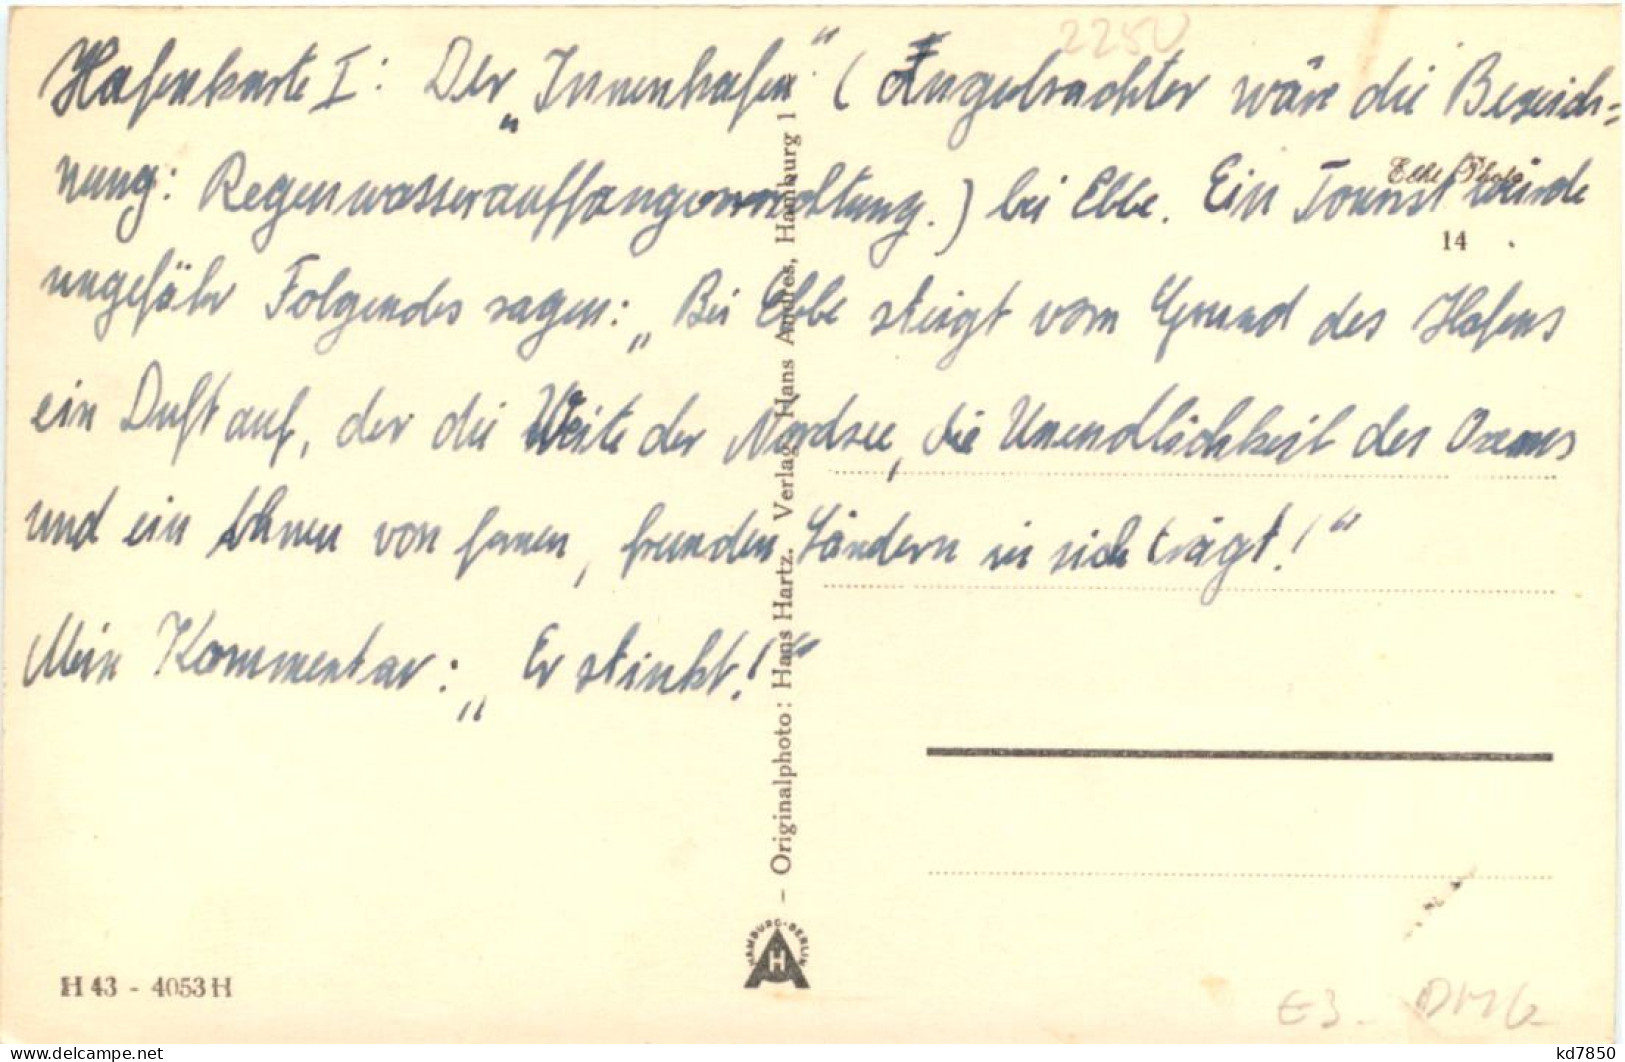 2250
Hafenkarte I: Der „Innenhafen“ (Angebrachter wäre die Bezeich=
nung: Regenwasserauffangvorrichtung.) bei Ebbe. Ein Tourist würde
Echt Photo
14
ungefähr Folgendes sagen: „Bei Ebbe steigt vom Grund des Hafens
ein Duft auf, der die Weite der Nordsee, die Unendlichkeit des Ozeans
und ein Ahnen von fernen, fremden Ländern in sich trägt!“
Mein Kommentar: „Er stinkt!“
- Originalphoto: Hans Hartz. Verlag Hans Andres, Hamburg 1
HAMBURG-BERLIN
HA
H 43 - 4053 H
E3. DMG
kd7850